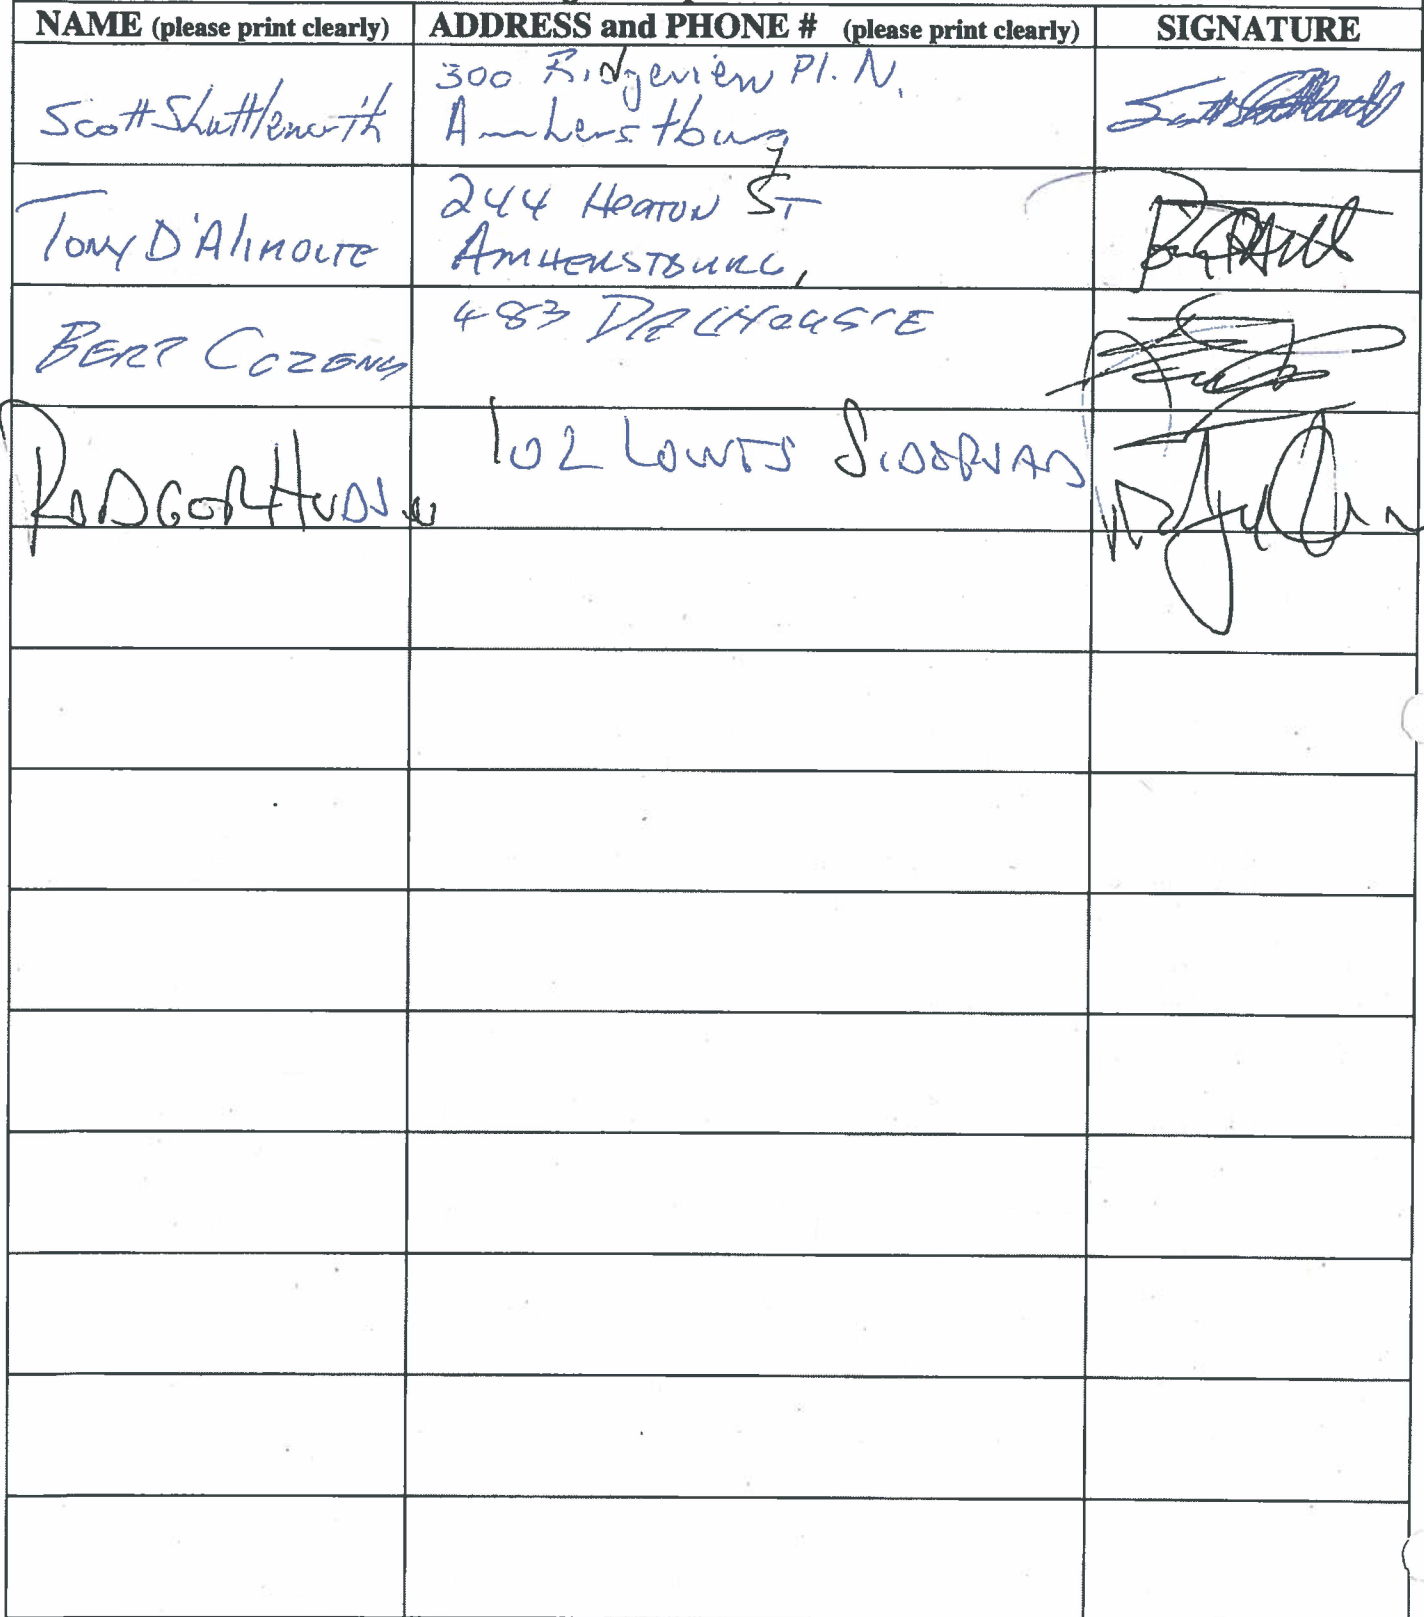 NAME (please print clearly) ADDRESS and PHONE # (please print clearly) SIGNATURE
Scott Shuttleworth
300 Ridgeview Pl. N.
Amherstburg
Tony D'Alimonte
244 Heaton St
Amherstburg,
BERT COZENS
483 DALHOUSIE
RODGER HUDSON
102 LOWES SIDEROAD